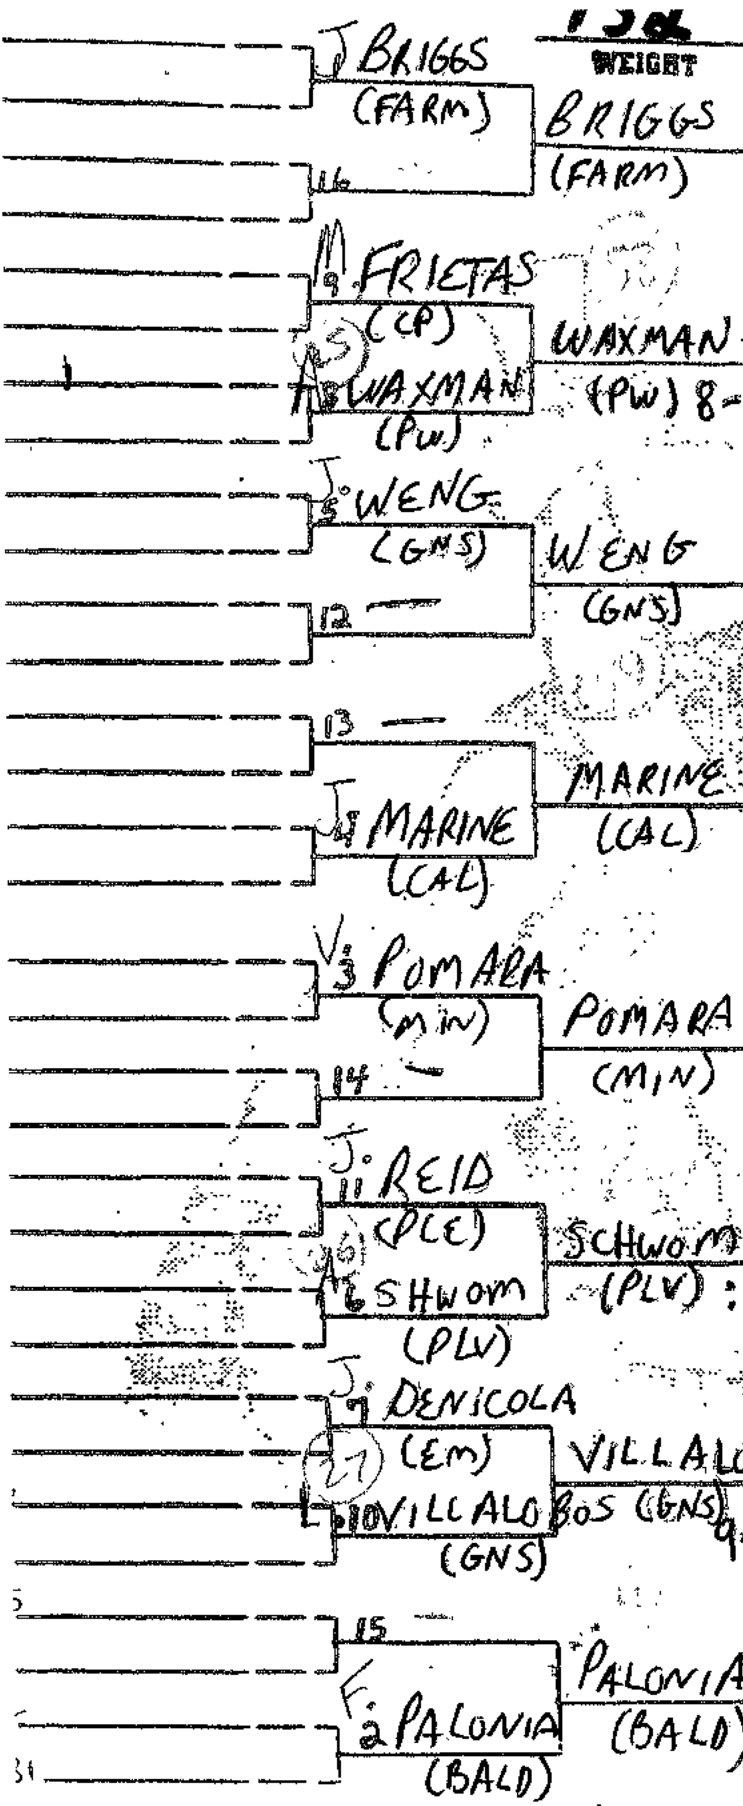 WEIGHT
J BRIGGS
(FARM)
BRIGGS
(FARM)
16
M. 9 FRIETAS
(CP)
25
WAXMAN
(PW) 8-
A 8 WAXMAN
(PW)
J. 5 WENG
(GNS)
WENG
(GNS)
12 —
13 —
MARINE
(CAL)
J. 4 MARINE
(CAL)
V. 3 POMARA
(MIN)
POMARA
(MIN)
14 —
J. 11 REID
(PCE)
SCHWOM
(PLV) :
A 6 SHWOM
(PLV)
J. 7 DENICOLA
(EM)
27
VILLALO
(GNS) 9
L. 10 VILLALOBOS
(GNS)
15 —
PALONIA
(BALD)
F. 2 PALONIA
(BALD)
31